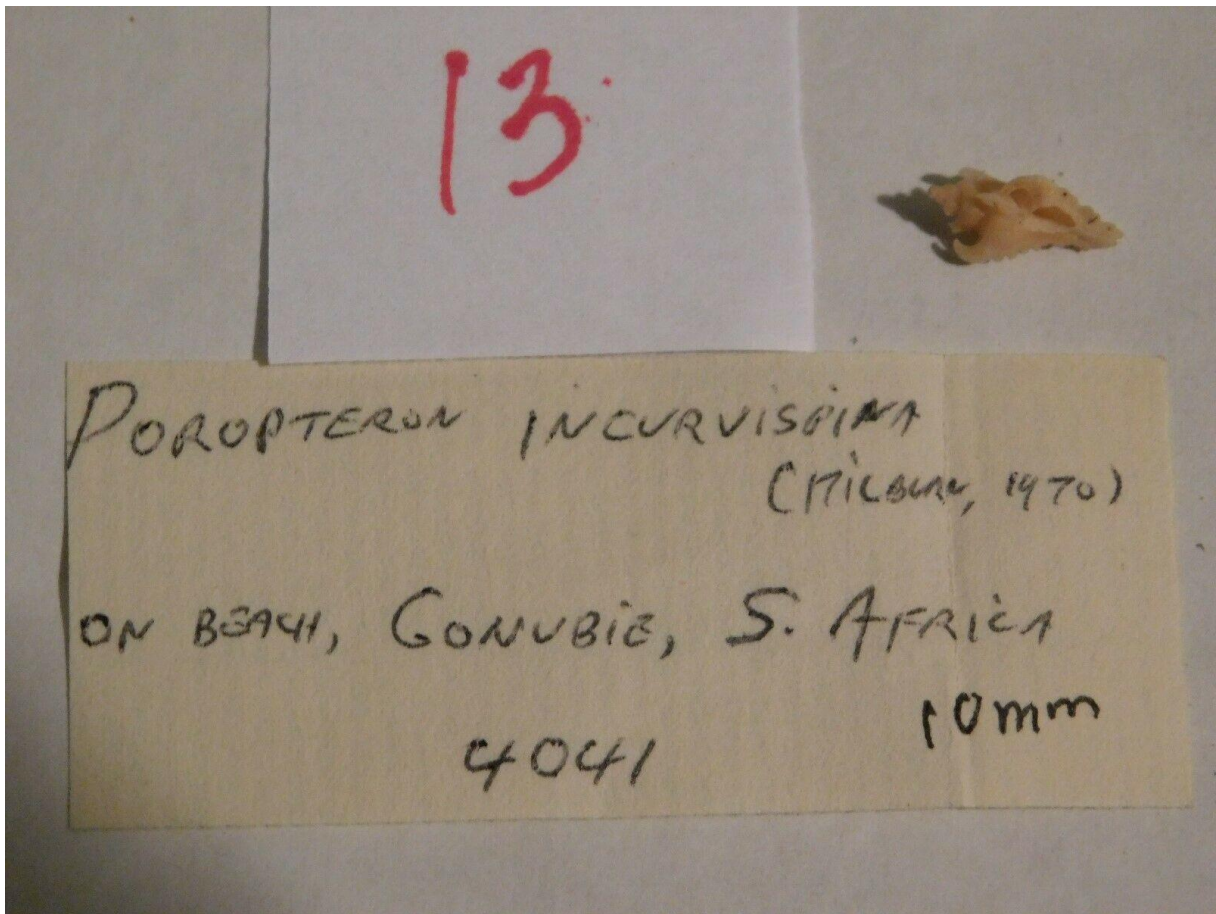 13
POROPTERON INCURVISPINA
(KILBURN, 1970)
ON BEACH, GONUBIE, S. AFRICA
10mm
4041